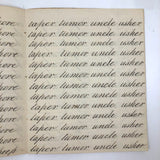 here taper tumor uncle usher
here taper tumor uncle usher
here taper tumor uncle usher
here taper tumor uncle usher
here taper tumor uncle usher
here taper tumor uncle usher
here taper tumor uncle usher
here taper tumor uncle usher
here taper tumor uncle usher
here taper tumor uncle usher
here taper tumor uncle usher
here taper tumor uncle usher